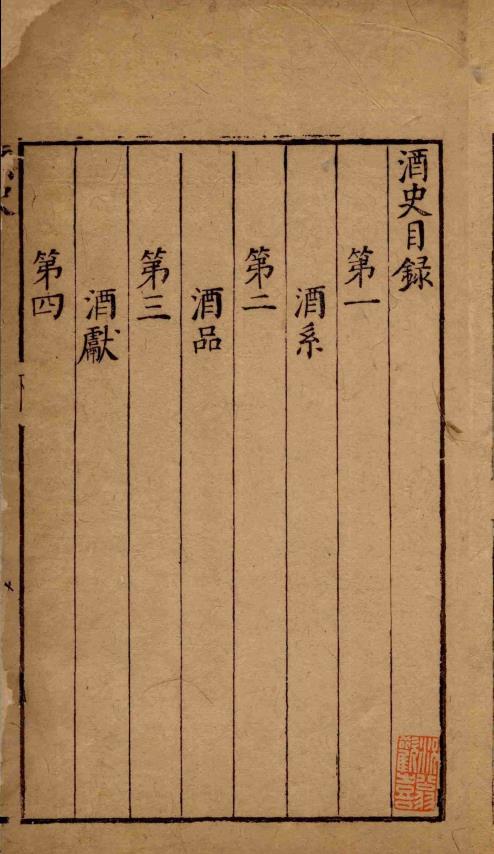 酒史目録
第一
酒系
第二
酒品
第三
酒獻
第四